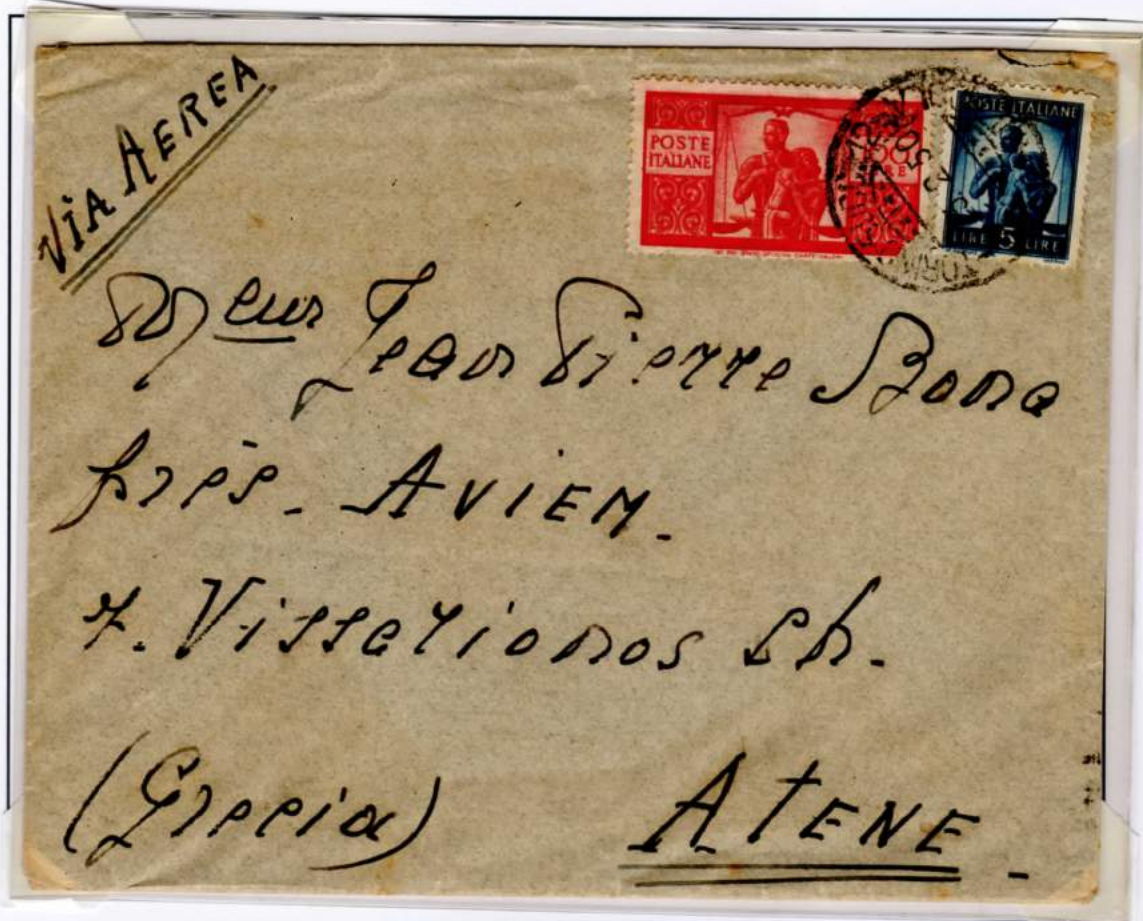 VIA AEREA
POSTE ITALIANE
POSTE ITALIANE
LIRE 5 LIRE
Meur Jean Pierre Bona
près - AVIEM -
7. Vissarionos Ch.
(Grecia) ATENE -